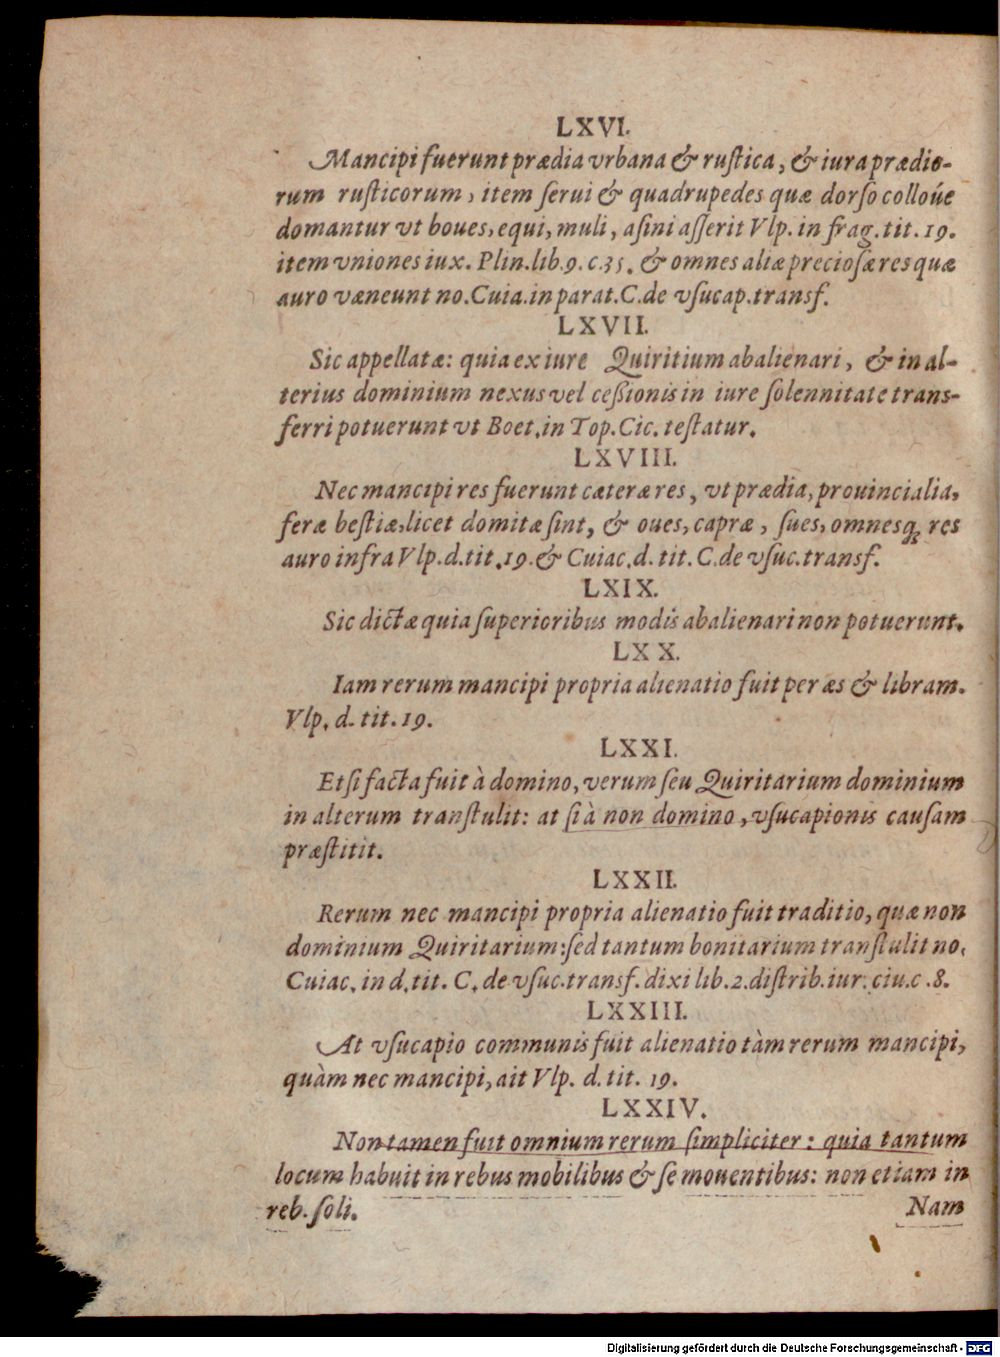 LXVI.
Mancipi fuerunt prædia vrbana & ruſtica, & iura prædio-
rum ruſticorum, item ſerui & quadrupedes quæ dorſo colloúe
domantur vt boues, equi, muli, aſini aſſerit Vlp. in frag. tit. 19.
item vniones iux. Plin. lib. 9. c. 35. & omnes aliæ precioſæ res quæ
auro væneunt no. Cuia. in parat. C. de vſucap. transf.
LXVII.
Sic appellatæ: quia ex iure Quiritium abalienari, & in al-
terius dominium nexus vel ceßionis in iure ſolennitate trans-
ferri potuerunt vt Boet. in Top. Cic. teſtatur.
LXVIII.
Nec mancipi res fuerunt cæteræ res, vt prædia, prouincialia,
feræ beſtiæ, licet domitæ ſint, & oues, capræ, ſues, omnesq; res
auro infra Vlp. d. tit. 19. & Cuiac. d. tit. C. de vſuc. transf.
LXIX.
Sic dictæ quia ſuperioribus modis abalienari non potuerunt.
LXX.
Iam rerum mancipi propria alienatio fuit per æs & libram.
Vlp. d. tit. 19.
LXXI.
Etſi facta fuit à domino, verum ſeu Quiritarium dominium
in alterum tranſtulit: at ſi à non domino, vſucapionis cauſam
præſtitit.
LXXII.
Rerum nec mancipi propria alienatio fuit traditio, quæ non
dominium Quiritarium: ſed tantum bonitarium tranſtulit no.
Cuiac. in d. tit. C. de vſuc. transf. dixi lib. 2. diſtrib. iur. ciu. c. 8.
LXXIII.
At vſucapio communis fuit alienatio tàm rerum mancipi,
quàm nec mancipi, ait Vlp. d. tit. 19.
LXXIV.
Non tamen fuit omnium rerum ſimpliciter: quia tantum
locum habuit in rebus mobilibus & ſe mouentibus: non etiam in
reb. ſoli. Nam
Digitalisierung gefördert durch die Deutsche Forschungsgemeinschaft - DFG